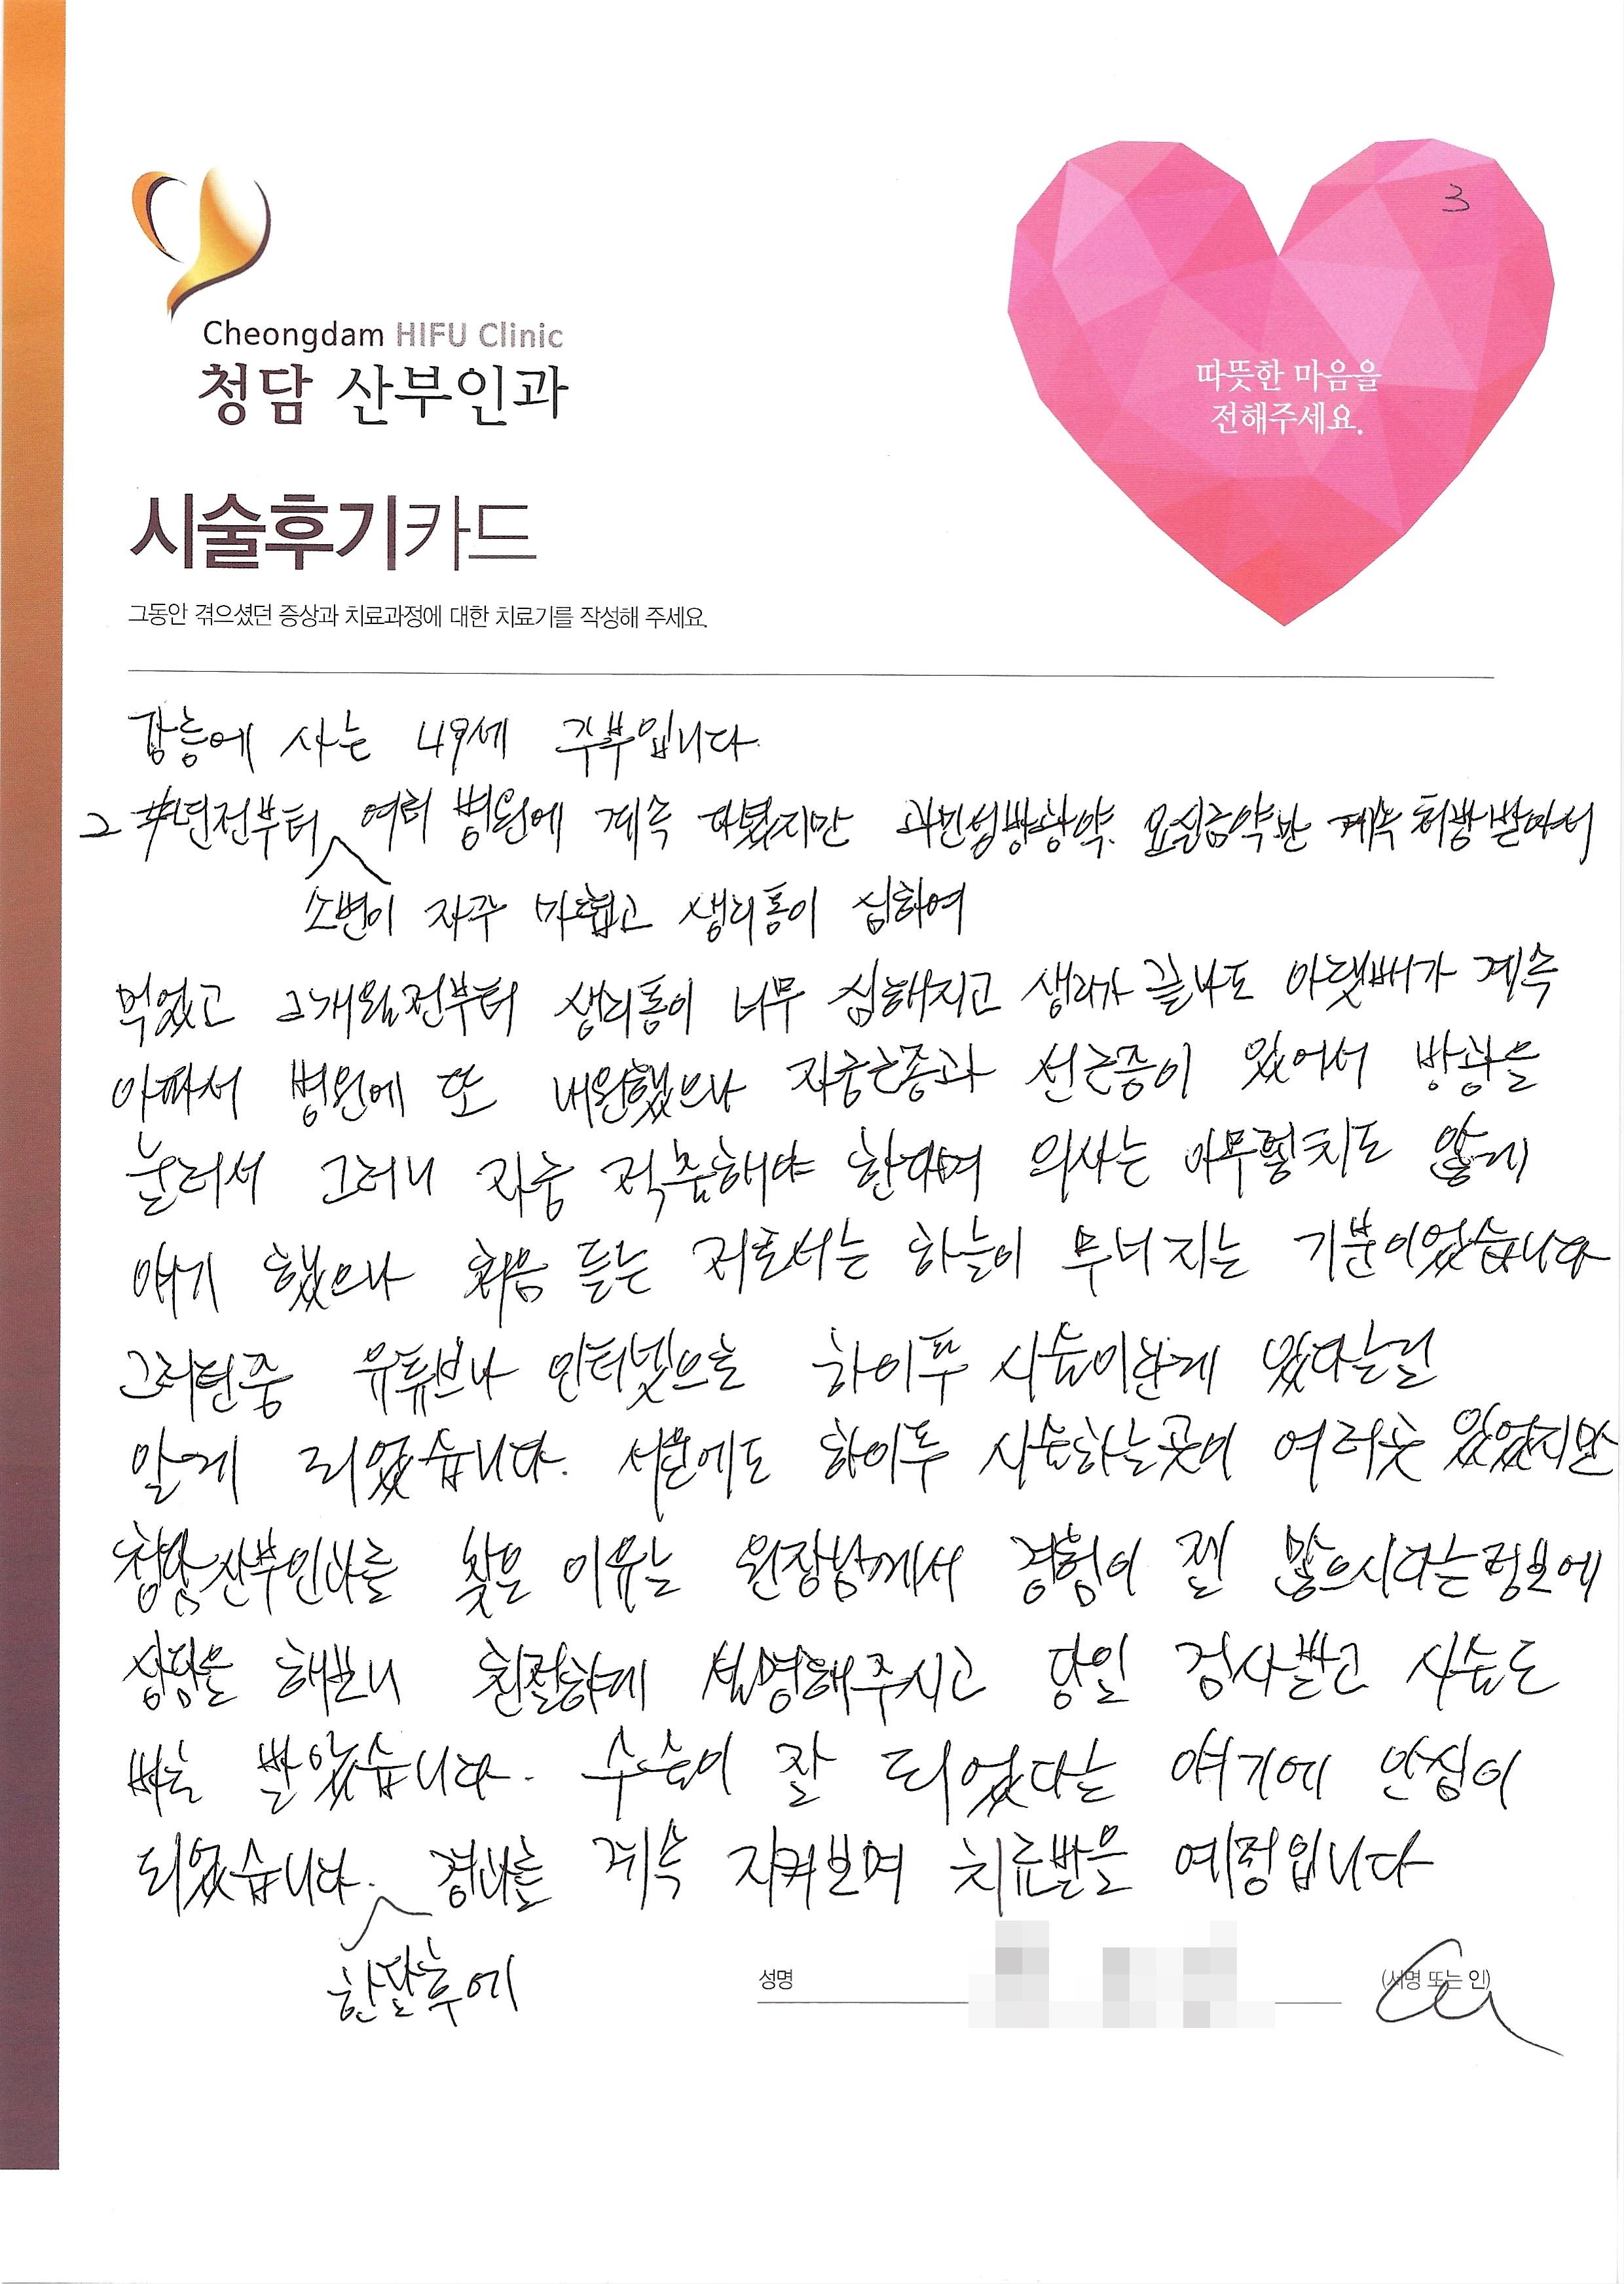 3
Cheongdam HIFU Clinic
청담 산부인과
따뜻한 마음을
전해주세요.
시술후기카드
그동안 겪으셨던 증상과 치료과정에 대한 치료기를 작성해 주세요.
강릉에 사는 49세 주부입니다
2년전부터 여러 병원에 계속 다녔지만 과민성방광약. 요실금약만 계속 처방받아서
소변이 자주 마렵고 생리통이 심하여
먹었고 2개월전부터 생리통이 너무 심해지고 생리가 끝나도 아랫배가 계속
아파서 병원에 또 내원했으나 자궁근종과 선근증이 있어서 방광을
눌러서 그러니 자궁 적출해야 한다며 의사는 아무렇치도 않게
얘기 했으나 처음 듣는 저로서는 하늘이 무너지는 기분이었습니다
그러던중 유튜브나 인터넷으로 하이푸 시술이란게 있다는걸
알게 되었습니다. 서울에도 하이푸 시술하는곳이 여러곳 있었지만
청담산부인과를 찾은 이유는 원장님께서 경험이 젤 많으시다는정보에
상담을 해보니 친절하게 설명해주시고 당일 검사받고 시술도
바로 받았습니다. 수술이 잘 되었다는 얘기에 안심이
되었습니다. 경과를 계속 지켜보며 치료받을 예정입니다
한달후에
성명
(서명 또는 인)